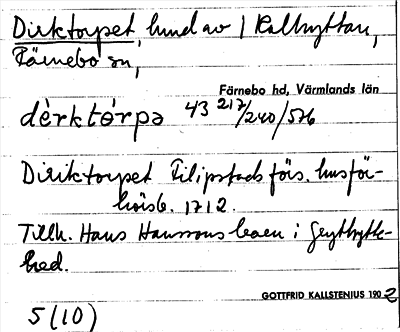 Dirktorpet, lund av / Kalhyttan,
Färnebo sn,
Färnebo hd, Värmlands län
dèrktórpə 43 217/240/576
Diriktorpet Filipstads förs. husför-
hörsb. 1712.
Tillh. Hans Hanssons i Geythytte-
hed.
GOTTFRID KALLSTENIUS 1902
5 (10)